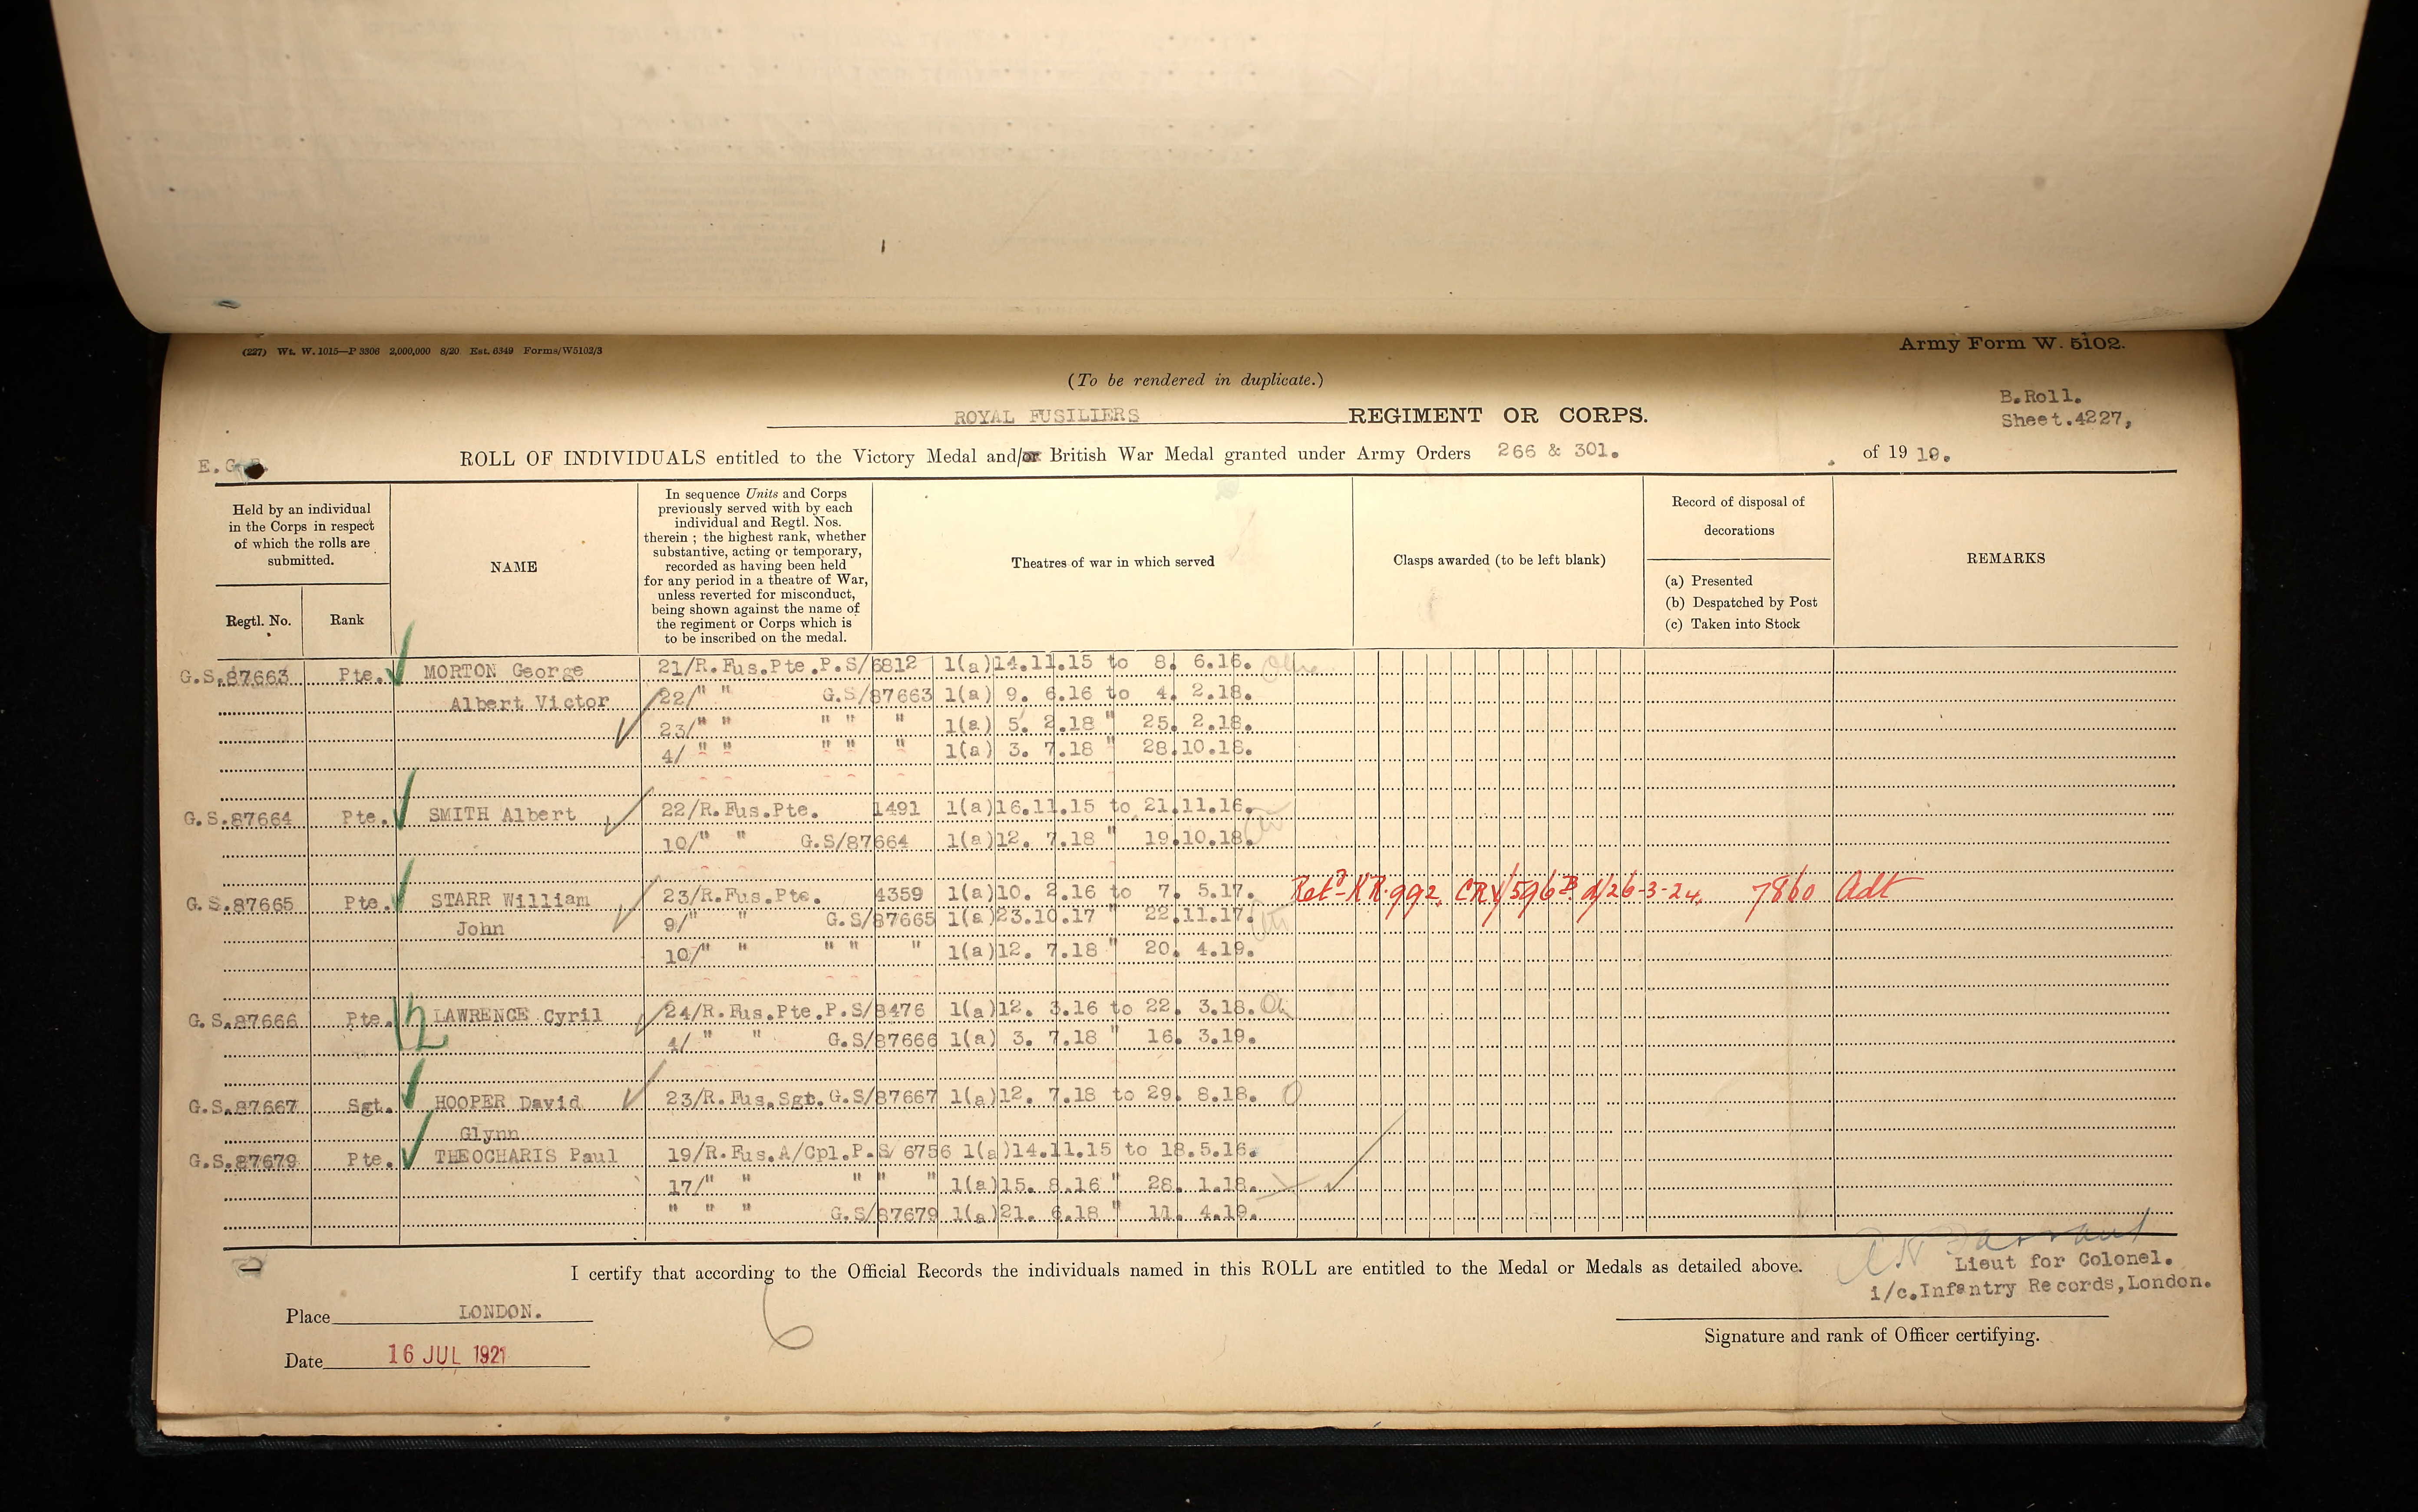 (227) Wt. W. 1015—P 3306 2,000,000 8/20 Est. 6349 Forms/W5102/3
Army Form W. 5102.
(To be rendered in duplicate.)
B.Roll.
ROYAL FUSILIERS REGIMENT OR CORPS.
Sheet.4227,
E.G.
ROLL OF INDIVIDUALS entitled to the Victory Medal and/or British War Medal granted under Army Orders 266 & 301. of 1919.
Held by an individual
in the Corps in respect
of which the rolls are
submitted.
Regtl. No.
Rank
NAME
In sequence Units and Corps
previously served with by each
individual and Regtl. Nos.
therein ; the highest rank, whether
substantive, acting or temporary,
recorded as having been held
for any period in a theatre of War,
unless reverted for misconduct,
being shown against the name of
the regiment or Corps which is
to be inscribed on the medal.
Theatres of war in which served
Clasps awarded (to be left blank)
Record of disposal of
decorations
(a) Presented
(b) Despatched by Post
(c) Taken into Stock
REMARKS
G.S.87663 Pte. MORTON George 21/R.Fus.Pte.P.S/6812 1(a)14.11.15 to 8. 6.16.
Albert Victor 22/" " G.S/87663 1(a) 9. 6.16 to 4. 2.18.
23/" " " " " 1(a) 5. 2.18 " 25. 2.18.
4/ " " " " " 1(a) 3. 7.18 " 28.10.18.
G.S.87664 Pte. SMITH Albert 22/R.Fus.Pte. 1491 1(a)16.11.15 to 21.11.16.
10/" " G.S/87664 1(a)12. 7.18 " 19.10.18.
G.S.87665 Pte. STARR William 23/R.Fus.Pte. 4359 1(a)10. 2.16 to 7. 5.17. Retd KR 992, CRV/596B d/26-3-24. 7860 Adt
John 9/" " G.S/87665 1(a)23.10.17 " 22.11.17.
10/" " " " " 1(a)12. 7.18 " 20. 4.19.
G.S.87666 Pte. LAWRENCE Cyril 24/R.Fus.Pte.P.S/8476 1(a)12. 3.16 to 22. 3.18.
4/ " " G.S/87666 1(a) 3. 7.18 " 16. 3.19.
G.S.87667 Sgt. HOOPER David 23/R.Fus.Sgt.G.S/87667 1(a)12. 7.18 to 29. 8.18.
Glynn
G.S.87679 Pte. THEOCHARIS Paul 19/R.Fus.A/Cpl.P.S/ 6756 1(a)14.11.15 to 18.5.16.
17/" " " " " 1(a)15. 8.16 " 28. 1.18.
" " " G.S/87679 1(a)21. 6.18 " 11. 4.19.
I certify that according to the Official Records the individuals named in this ROLL are entitled to the Medal or Medals as detailed above.
Lieut for Colonel.
i/c.Infantry Records,London.
Place LONDON.
Signature and rank of Officer certifying.
Date 16 JUL 1921